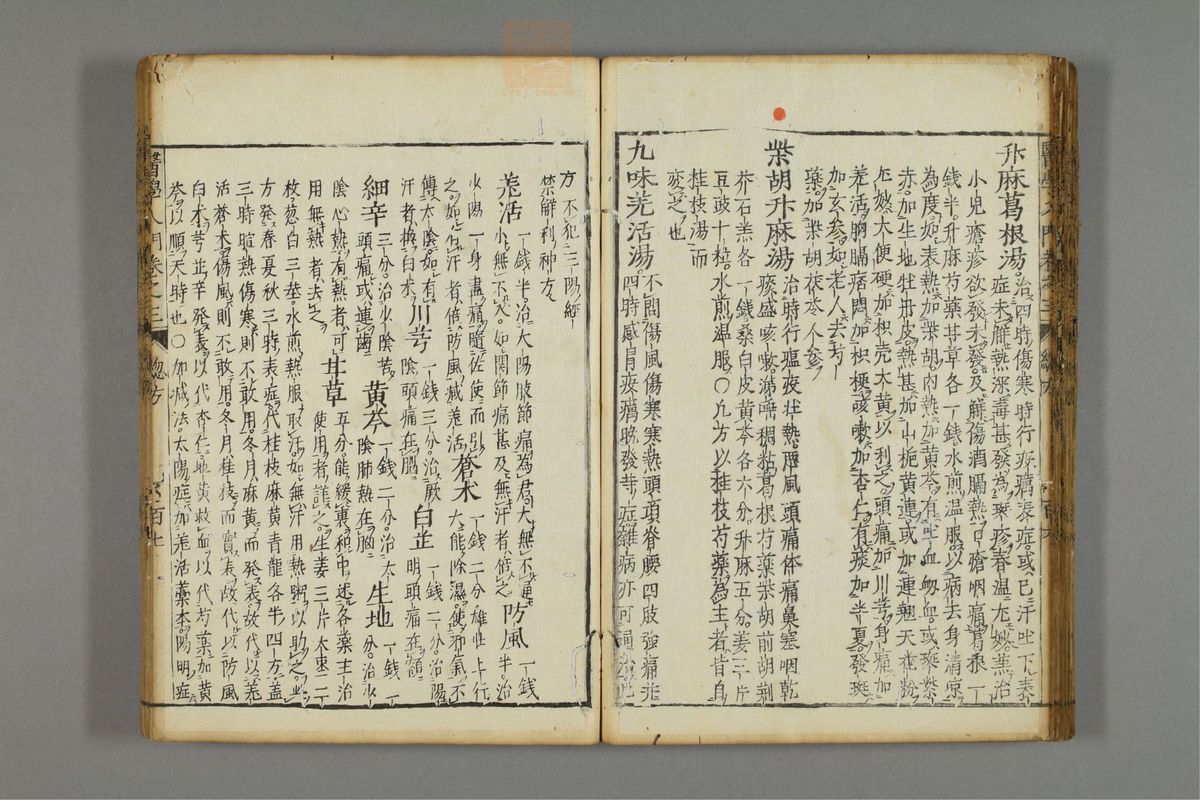 升麻葛根湯 治四時傷寒時行疫癘表症或已汗吐下表
症未解熱深毒甚發為班疹春温尤妙兼治
小兒瘡疹欲發未發及解傷酒膈熱口瘡咽痛葛根一
錢半升麻芍藥甘草各一錢水煎温服以病去身清凉
為度如表熱加柴胡內熱加黃芩有吐血衄血或班紫
赤加生地牡丹皮熱甚加山梔黃連或加連翹天花粉
尤妙大便硬加枳壳大黃以利之頭痛加川芎身痛加
羌活胸膈痞悶加枳梗咳嗽加杏仁有痰加半夏發斑
加玄參如老人去芍
藥加柴胡茯苓人參
柴胡升麻湯 治時行瘟疫壮熱惡風頭痛体痛鼻塞咽乾
痰盛咳嗽涕唾稠粘葛根芍藥柴胡前胡荊
芥石羔各一錢桑白皮黃芩各六分升麻五分姜三片
豆豉十粒水煎温服○九方以桂枝芍藥為主者皆自
桂枝湯而
变之也
九味羌活湯 不問傷風傷寒寒熱頭項脊腰四肢強痛并
四時感冒疫癘晚發寺症雜病亦可通治此
方不犯三陽經
禁解利神方
羌活 一錢半治太陽肢節痛為君大無不通
小無不入如関節痛甚及無汗者倍之 防風 一錢
半治
一身盡痛隨佐使而引
之如有汗者倍防風減羌活 蒼朮 一錢二分雄壮上行
大能除濕使邪氣不
傳太陰如有
汗者換白朮 川芎 一錢三分治厥
陰頭痛在腦 白芷 一錢二分治陽
明頭痛在額
細辛 三分治少陰苦
頭痛或連齒 黃芩 一錢二分治太
陰肺熱在胸 生地 一錢一
分治少
陰心熱有熱者可
用無熱者去之 甘草 五分能緩裏和中迷各藥主治
使用者詳之生姜三片大棗二
枝葱白三茎水煎熱服取汗如無汗用熱粥以助之此
方發春夏秋三時表症代桂枝麻黃青龍各半四方盖
三時暄熱傷寒則不敢用冬月麻黃而発表故代以羌
活蒼朮傷風則不敢用冬月桂枝而實表故代以防風
白朮芎芷辛発表以代杏仁地黃救血以代芍藥加黃
芩以順天時也○加減法太陽症加羌活藁本陽明症
醫學入門卷之三 總方